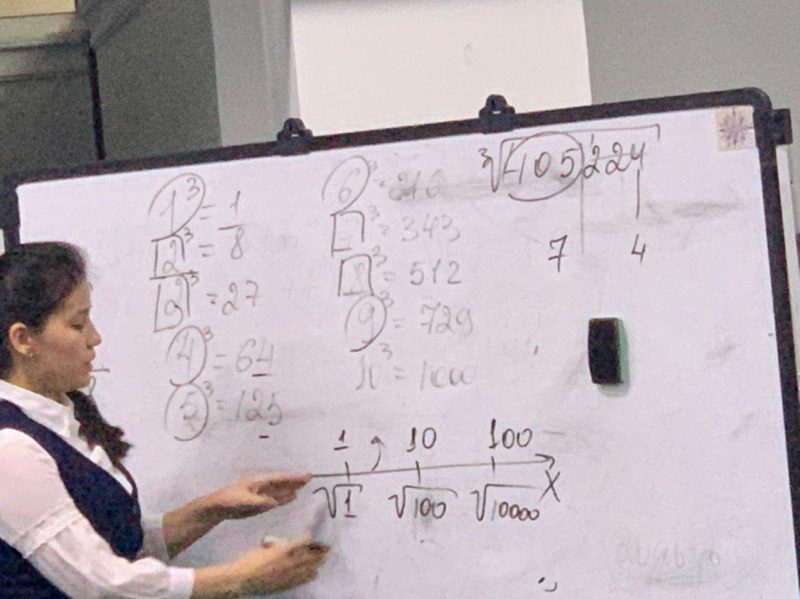 1³ = 1
2³ = 8
3³ = 27
4³ = 64
5³ = 125
6³ = 216
7³ = 343
8³ = 512
9³ = 729
10³ = 1000
∛405224
7 4
1 10 100
√1 √100 √10000 X